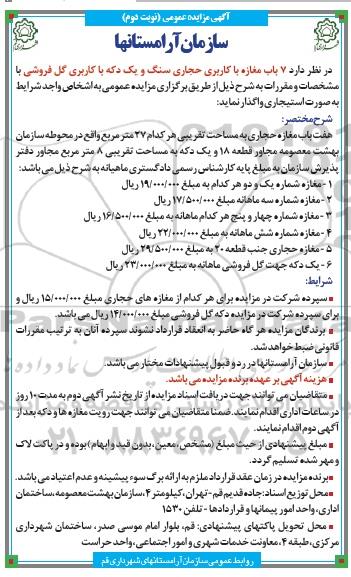 آگهی مزایده عمومی (نوبت دوم)
سازمان آرامستانها
در نظر دارد ۷ باب مغازه با کاربری حجاری سنگ و یک دکه با کاربری گل فروشی با
مشخصات و مقررات به شرح ذیل از طریق برگزاری مزایده عمومی به اشخاص واجد شرایط
به صورت استیجاری واگذار نماید:
شرح مختصر:
هفت باب مغازه حجاری به مساحت تقریبی هر کدام ۲۷ متر مربع واقع در محوطه سازمان
بهشت معصومه مجاور قطعه ۱۸ و یک دکه به مساحت تقریبی ۸ متر مربع مجاور دفتر
پذیرش سازمان به مبلغ پایه کارشناس رسمی دادگستری ماهیانه به شرح ذیل می باشد:
۱ - مغازه شماره یک و دو هر کدام به مبلغ ۱۹/۰۰۰/۰۰۰ ریال
۲ - مغازه شماره سه ماهانه مبلغ ۱۷/۵۰۰/۰۰۰ ریال
۳ - مغازه شماره چهار و پنج هر کدام ماهانه به مبلغ ۱۶/۵۰۰/۰۰۰ ریال
۴ - مغازه شماره شش ماهانه به مبلغ ۲۲/۰۰۰/۰۰۰ ریال
۵ - مغازه حجاری جنب قطعه ۲۰ به مبلغ ۲۹/۵۰۰/۰۰۰ ریال
۶ - یک دکه جهت گل فروشی ماهانه به مبلغ ۲۳/۰۰۰/۰۰۰ ریال
شرایط:
سپرده شرکت در مزایده برای هر کدام از مغازه های حجاری مبلغ ۱۵/۰۰۰/۰۰۰ ریال و
برای سپرده شرکت در مزایده دکه گل فروشی مبلغ ۱۴/۰۰۰/۰۰۰ ریال می باشد.
برندگان مزایده هر گاه حاضر به انعقاد قرارداد نشوند سپرده آنان به ترتیب مقررات
قانونی ضبط خواهد شد.
سازمان آرامستانها در رد و قبول پیشنهادات مختار می باشد.
هزینه آگهی بر عهده برنده مزایده می باشد.
متقاضیان می توانند جهت دریافت اسناد مزایده از تاریخ نشر آگهی دوم به مدت ۱۰ روز
در ساعات اداری اقدام نمایند. ضمنا متقاضیان می توانند جهت رویت مغازه ها و دکه بعد از
آگهی دوم اقدام نمایند.
مبلغ پیشنهادی از حیث مبلغ (مشخص، معین، بدون قید و ابهام) بوده و در پاکت لاک
و مهر شده تسلیم گردد.
برنده مزایده در زمان عقد قرارداد ملزم به ارائه برگ سوء پیشینه و عدم اعتیاد می باشد.
محل توزیع اسناد: جاده قدیم قم - تهران، کیلومتر ۴، سازمان بهشت معصومه، ساختمان
اداری، واحد امور پیمانها و قراردادها - تلفن ۱۵۳۰
محل تحویل پاکتهای پیشنهادی: قم، بلوار امام موسی صدر، ساختمان شهرداری
مرکزی، طبقه ۴، معاونت خدمات شهری و امور اجتماعی، واحد حراست
روابط عمومی سازمان آرامستانهای شهرداری قم